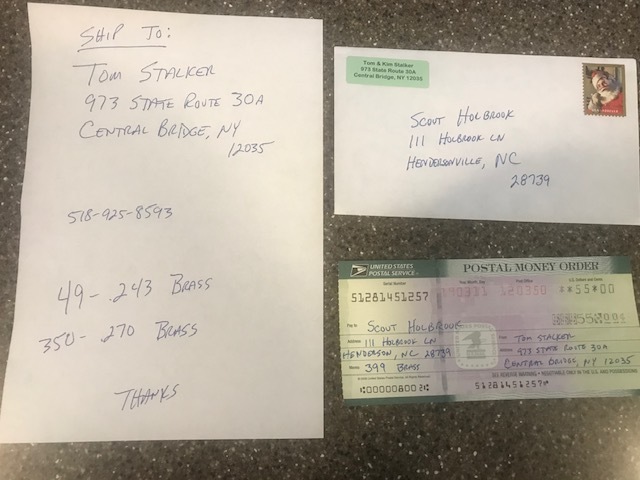 SHIP TO:
TOM STALKER
973 STATE ROUTE 30A
CENTRAL BRIDGE, NY
12035
518-925-8593
49- .243 BRASS
350- .270 BRASS
THANKS
Tom & Kim Stalker
973 State Route 30A
Central Bridge, NY 12035
SCOUT HOLBROOK
111 HOLBROOK LN
HENDERSONVILLE, NC
28739
UNITED STATES
POSTAL SERVICE
POSTAL MONEY ORDER
Serial Number
Year, Month, Day
Post Office
U.S. Dollars and Cents
51281451257
190311
120350
**55*00
Pay to
SCOUT HOLBROOK
Address
111 HOLBROOK LN
HENDERSON, NC 28739
Memo
399 BRASS
From
TOM STALKER
Address
973 STATE ROUTE 30A
CENTRAL BRIDGE, NY 12035
SEE REVERSE WARNING • NEGOTIABLE ONLY IN THE U.S. AND POSSESSIONS
⑆000008002⑆
51281451257⑈